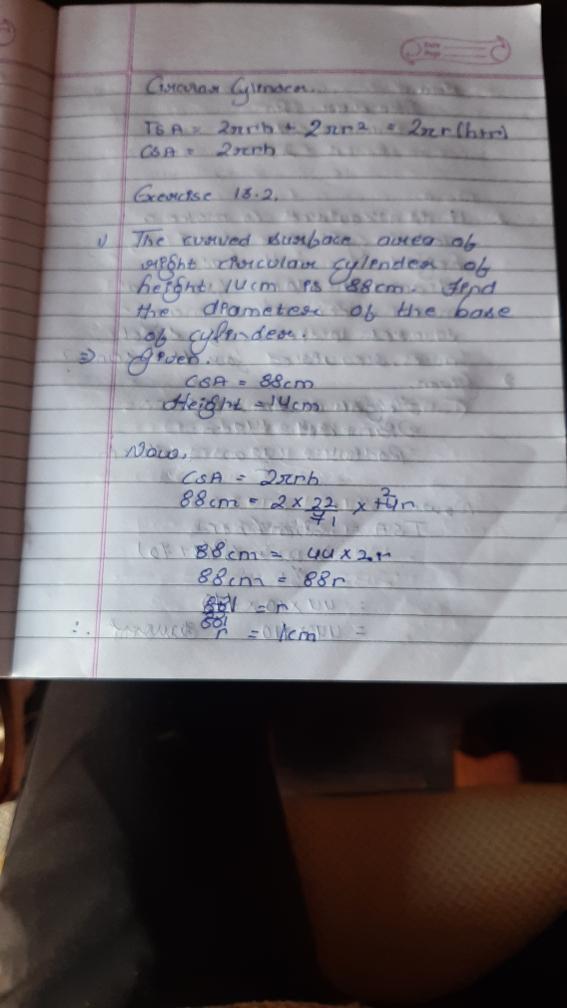 Circular Cylender.
TSA = 2πrh + 2πr² = 2πr(h+r)
CSA = 2πrh
Exercise 13.2.
1) The curved surface area of
right circular cylender of
height 14cm is 88cm. Find
the diameter of the base
of cylinder.
=> Given.
CSA = 88cm
Height = 14cm
Now,
CSA = 2πrh
88cm = 2 × 22/7 1 × 14 2 r
88cm = 44 × 2 r
88cm = 88r
88 1/88 1 = r
∴ r = 1cm